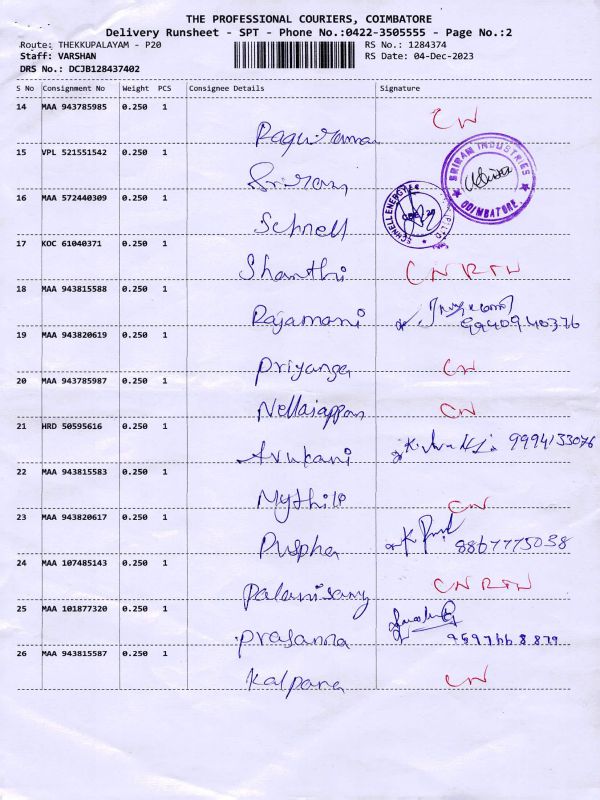 THE PROFESSIONAL COURIERS, COIMBATORE
Delivery Runsheet - SPT - Phone No.:0422-3505555 - Page No.:2
Route: THEKKUPALAYAM - P20 RS No.: 1284374
Staff: VARSHAN RS Date: 04-Dec-2023
DRS No.: DCJB128437402
S No Consignment No Weight PCS Consignee Details Signature
14 MAA 943785985 0.250 1
Raguraman CN
15 VPL 521551542 0.250 1
Sriram SRIRAM INDUSTRIES COIMBATORE
16 MAA 572440309 0.250 1
Schnell SCHNELL ENERGY
17 KOC 61040371 0.250 1
Shanthi CN RTN
18 MAA 943815588 0.250 1
Rajamani 9940940376
19 MAA 943820619 0.250 1
Priyanga CN
20 MAA 943785987 0.250 1
Nellaiappan CN
21 HRD 50595616 0.250 1
Arukani 9994133076
22 MAA 943815583 0.250 1
Mythili CN
23 MAA 943820617 0.250 1
Puspha 8867775038
24 MAA 107485143 0.250 1
Palanisamy CN RTN
25 MAA 101877320 0.250 1
Prasanna 9597668879
26 MAA 943815587 0.250 1
Kalpana CN